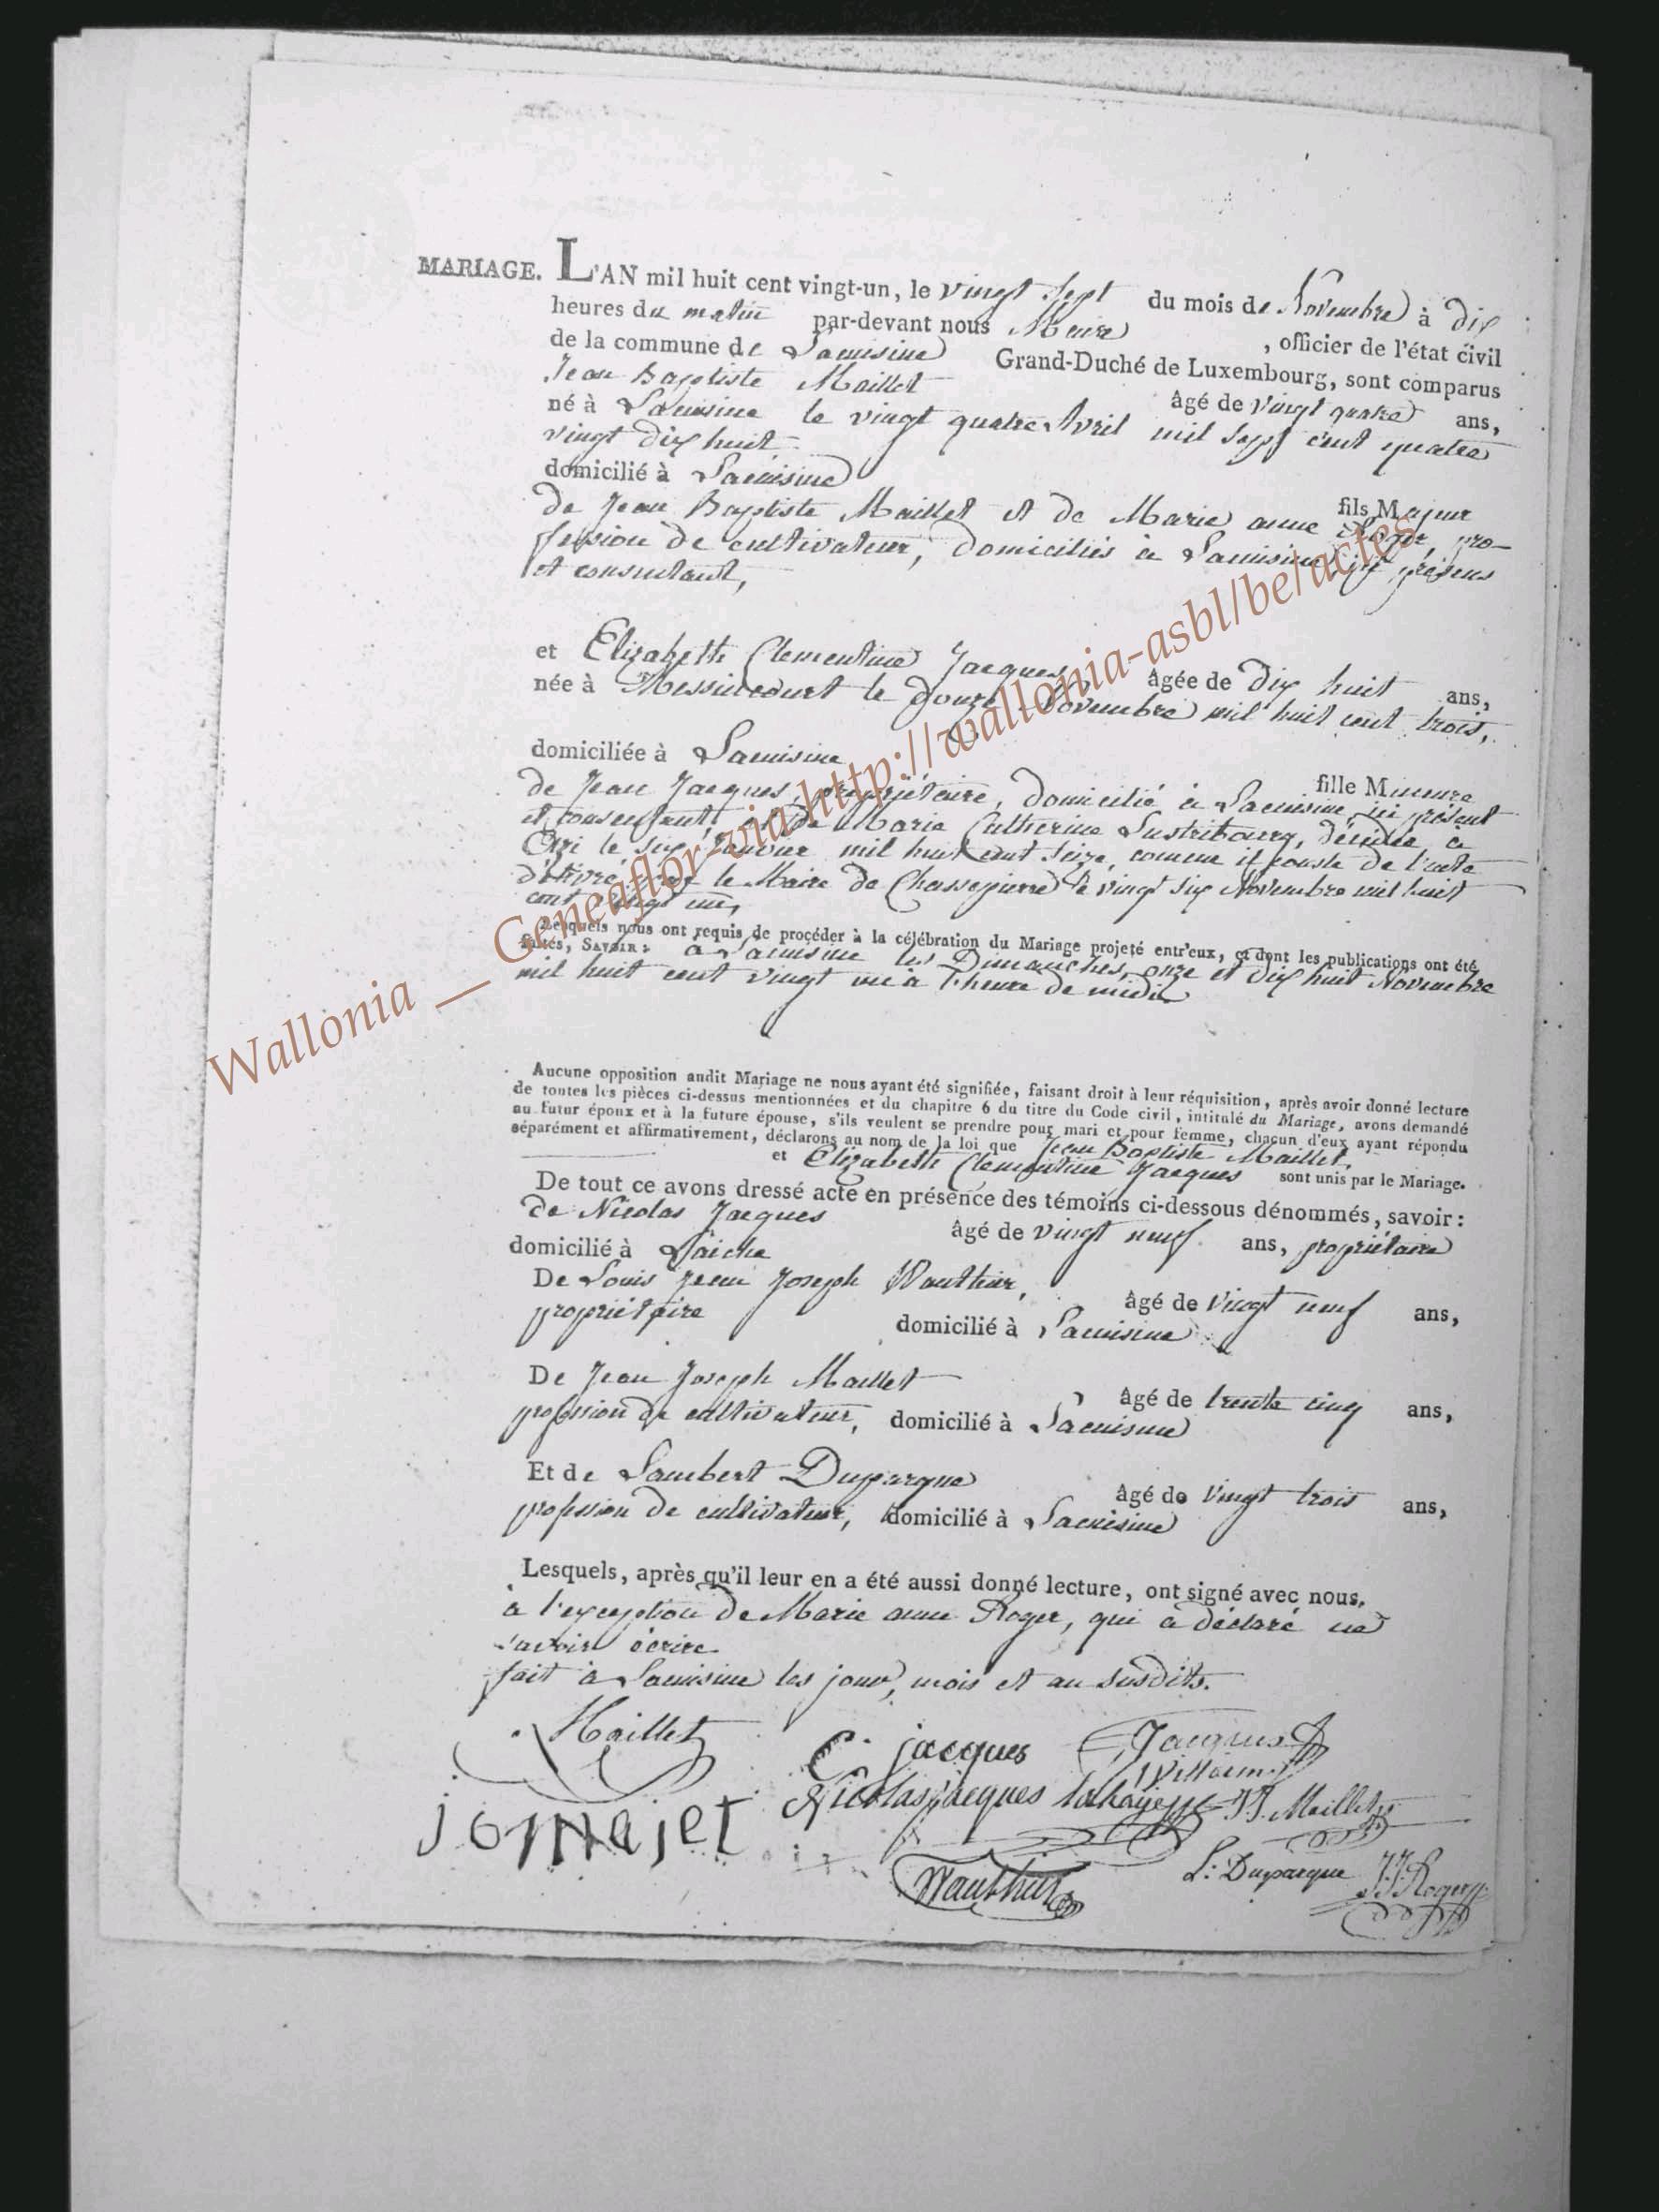 MARIAGE. L'AN mil huit cent vingt-un, le vingt sept du mois de Novembre à dix
heures du matin par-devant nous Maire , officier de l'état civil
de la commune de Lacuisine Grand-Duché de Luxembourg, sont comparus
Jean Baptiste Maillet âgé de vingt quatre ans,
né à Lacuisine le vingt quatre Avril mil sept cent quatre
vingt dix huit
domicilié à Lacuisine fils Majeur
de Jean Baptiste Maillet et de Marie anne Roger, pro-
fession de cultivateur, domiciliés à Lacuisine ici présens
et consentant,
et Elizabeth Clementine Jacques âgée de dix huit ans,
née à Messincourt le douze Novembre mil huit cent trois,
domiciliée à Lacuisine fille Mineure
de Jean Jacques, propriétaire, domicilié à Lacuisine, ici présent
et consentant, et de Marie Catherine décédée à
le six Janvier mil huit cent seize, comme il conste de l'acte
délivré par le Maire de Chassepierre le vingt six Novembre mil huit
cent vingt un,
Lesquels nous ont requis de procéder à la célébration du Mariage projeté entr'eux, et dont les publications ont été
faites, SAVOIR: à Lacuisine les Dimanches, onze et dix huit Novembre
mil huit cent vingt un à l'heure de midi
Aucune opposition audit Mariage ne nous ayant été signifiée, faisant droit à leur réquisition, après avoir donné lecture
de toutes les pièces ci-dessus mentionnées et du chapitre 6 du titre du Code civil, intitulé du Mariage, avons demandé
au futur époux et à la future épouse, s'ils veulent se prendre pour mari et pour femme, chacun d'eux ayant répondu
séparément et affirmativement, déclarons au nom de la loi que Jean Baptiste Maillet,
et Elizabeth Clementine Jacques sont unis par le Mariage.
De tout ce avons dressé acte en présence des témoins ci-dessous dénommés, savoir:
de Nicolas Jacques âgé de vingt neuf ans, propriétaire
domicilié à Laiche
De Louis Jean Joseph Wauthier, âgé de vingt neuf ans,
propriétaire domicilié à Lacuisine
De Jean Joseph Maillet âgé de trente cinq ans,
profession de cultivateur, domicilié à Lacuisine
Et de Lambert Duparque âgé de vingt trois ans,
profession de cultivateur, domicilié à Lacuisine
Lesquels, après qu'il leur en a été aussi donné lecture, ont signé avec nous,
à l'exception de Marie anne Roger, qui a déclaré ne
savoir écrire
fait à Lacuisine les jour, mois et an susdits.
Maillet C. jacques Jacques
Nicolas jacques J.J. Maillet
jomajet
Wauthier L: Duparque J.J. Roger
Wallonia __ Geneaflor-via-http://wallonia-asbl/be/actes